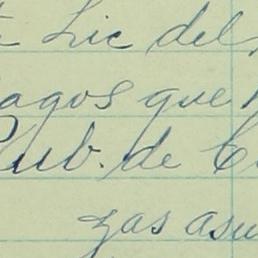 Lic del
agos que
ub. de C
zas asu